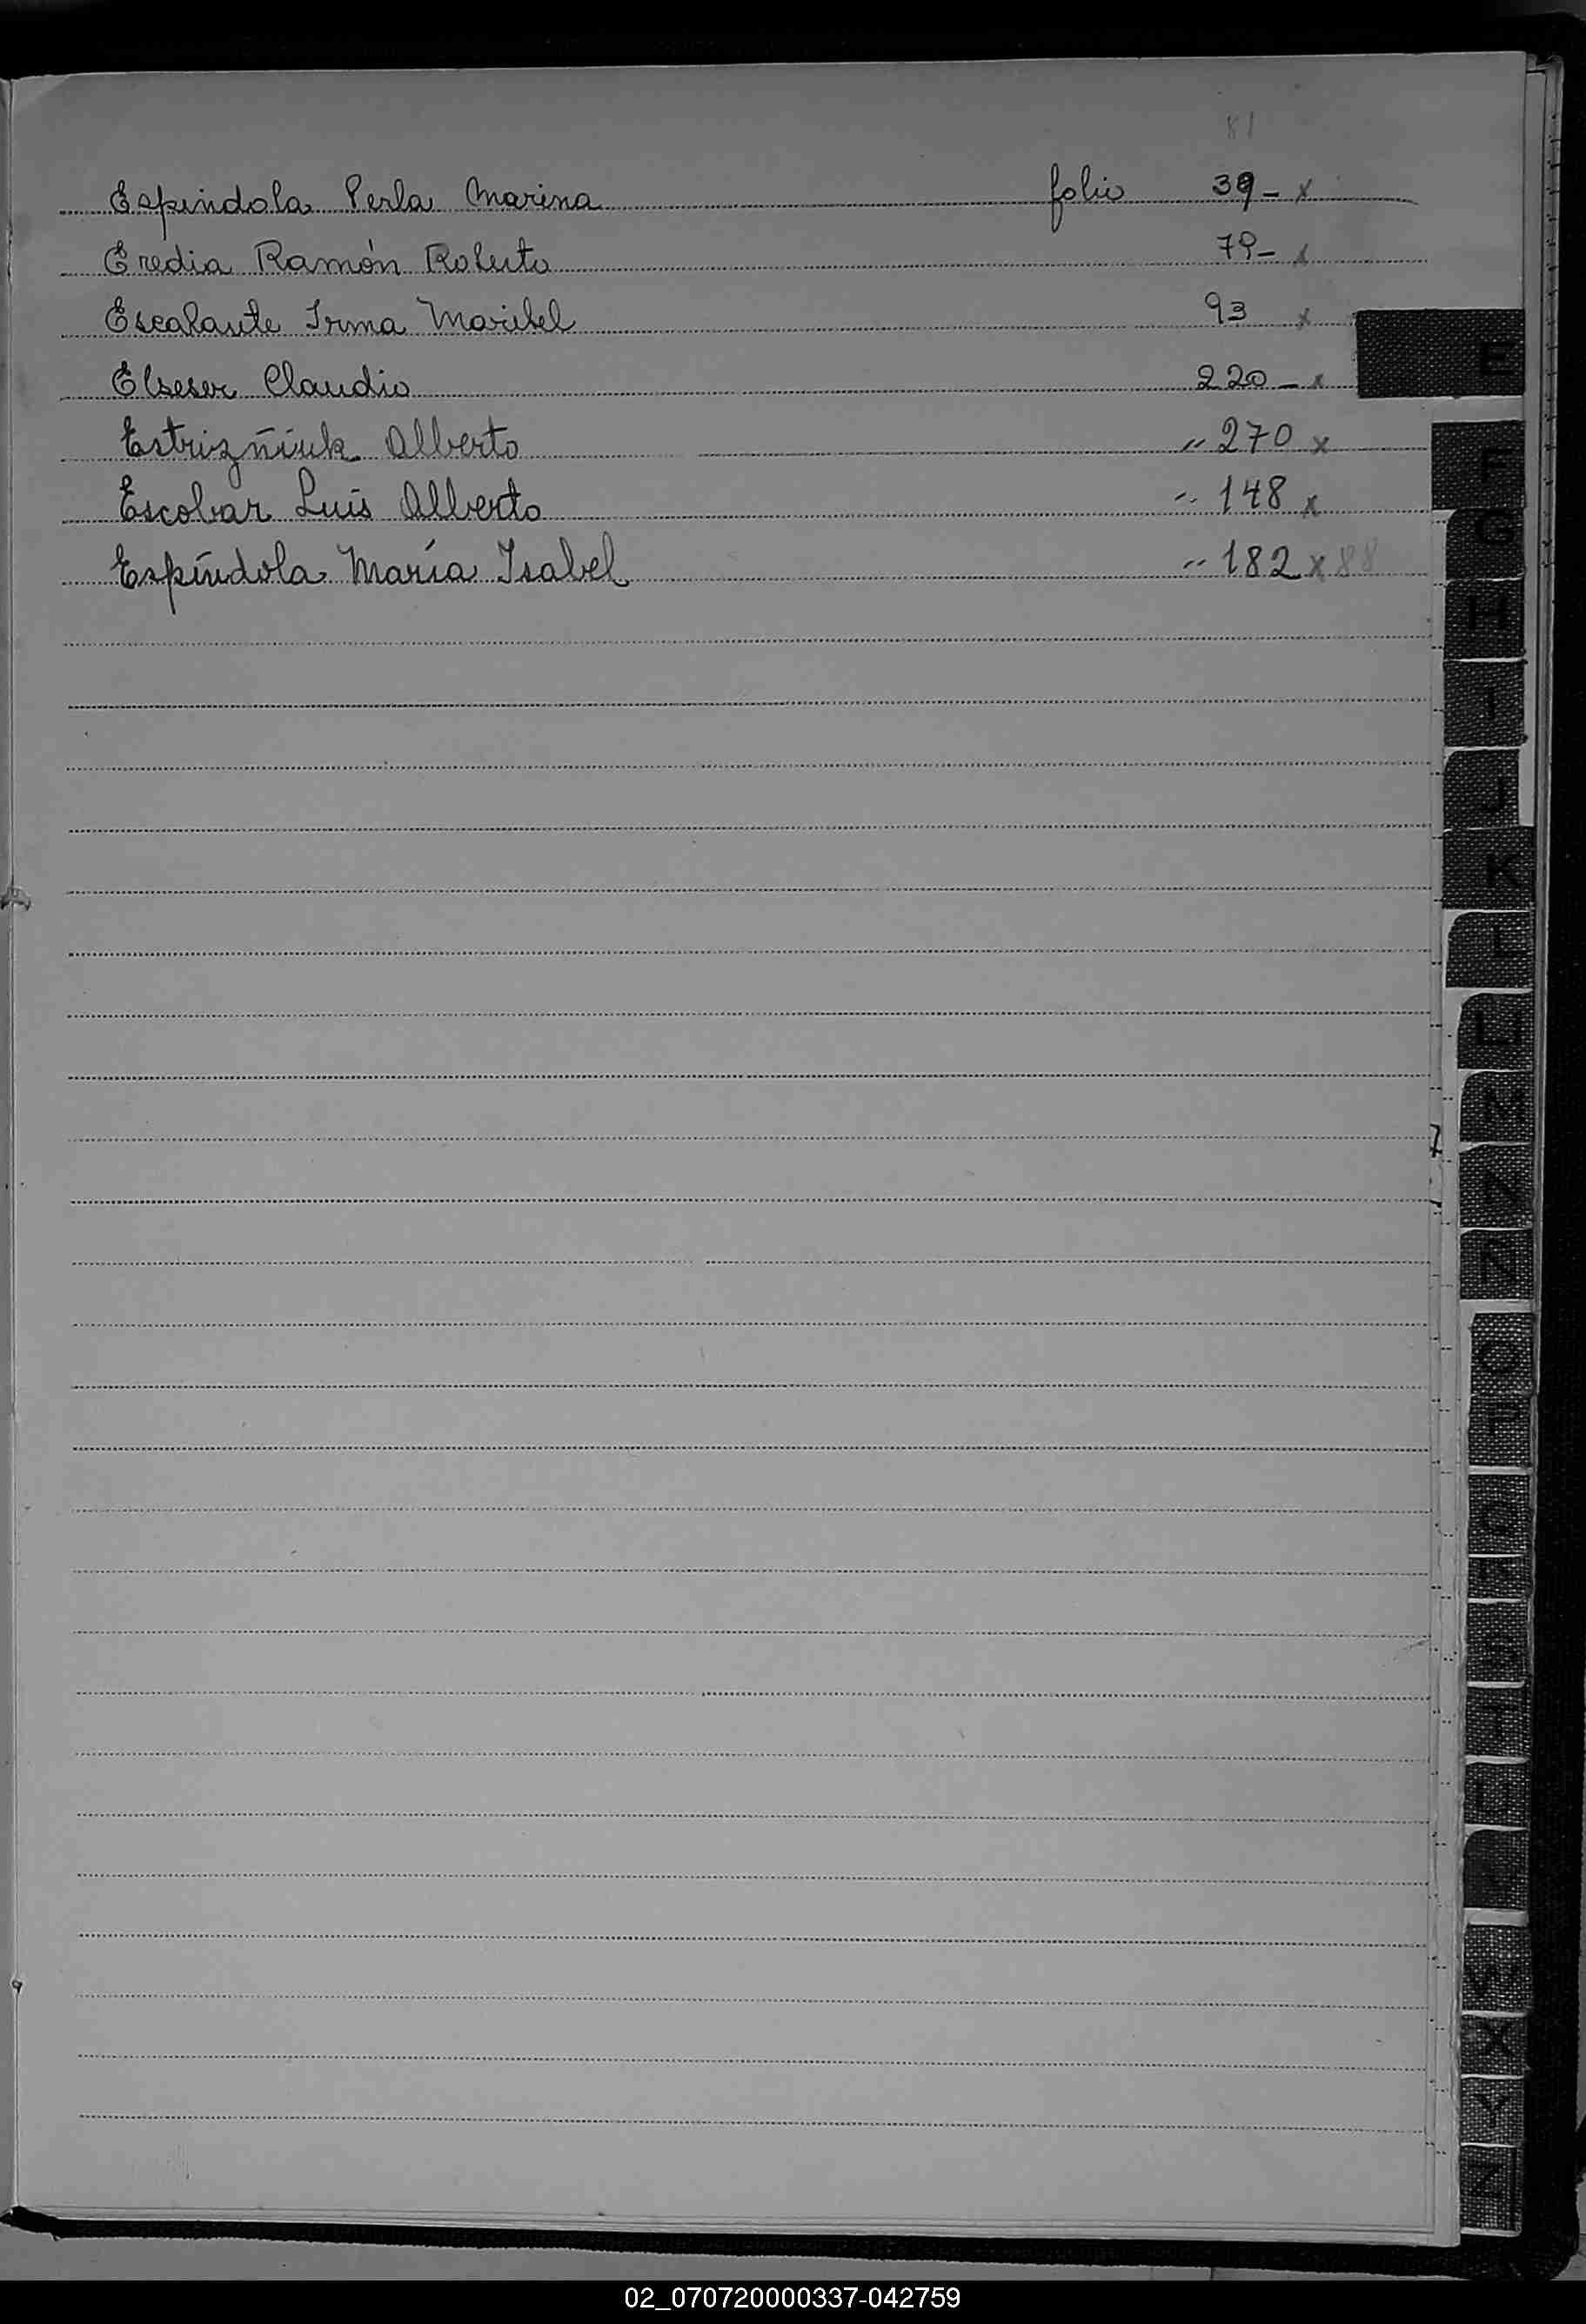 81
Espindola Perla Marina folio 39 - x
Eredia Ramón Roberto 79 - x
Escalante Irma Maribel 93 x
Elseser Claudio 220 - x
Estrizñiuk Alberto " 270 x
Escobar Luis Alberto " 148 x
Espíndola María Isabel " 182 x 88
E
F
G
H
I
J
K
L
LL
M
N
Ñ
O
P
Q
R
S
T
U
W
X
Y
Z
02_070720000337-042759